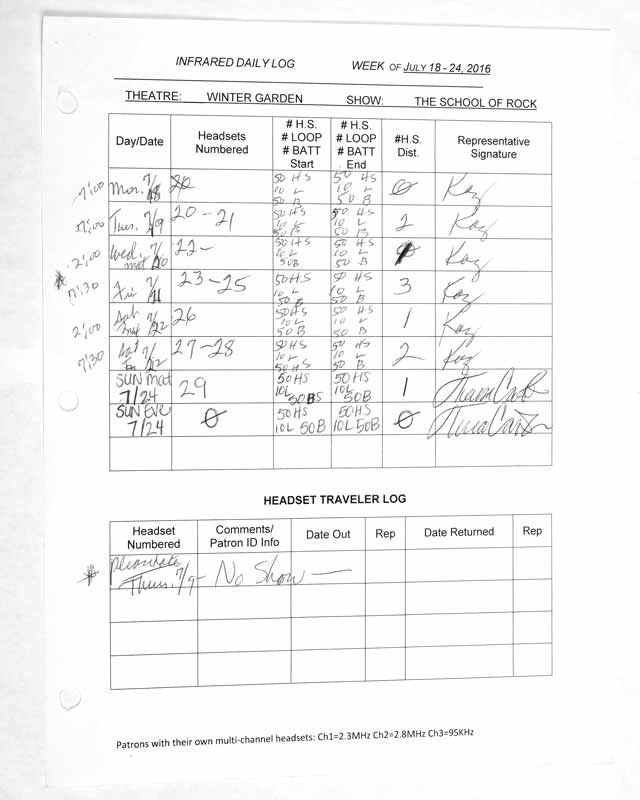 INFRARED DAILY LOG WEEK OF JULY 18 - 24, 2016
THEATRE: WINTER GARDEN SHOW: THE SCHOOL OF ROCK
Day/Date Headsets Numbered # H.S. # LOOP # BATT Start # H.S. # LOOP # BATT End #H.S. Dist. Representative Signature
7:00 Mon. 7/18 50 HS 10 L 50 B 50 HS 10 L 50 B 0 Kaz
7:00 Tues. 7/19 20-21 50 HS 10 L 50 B 50 HS 10 L 50 B 2 Kaz
2:00 Wed. mat 7/20 22- 50 HS 10 L 50 B 50 HS 10 L 50 B Kaz
* 7:30 Fri 7/ 23-25 50 HS 10 L 50 B 50 HS 10 L 50 B 3 Kaz
2:00 Sat 7/22 26 50 HS 10 L 50 B 50 HS 10 L 50 B 1 Kaz
7:30 Sat 7/22 27-28 50 HS 10 L 50 HS 50 HS 10 L 50 B 2 Kaz
SUN Mat 7/24 29 50 HS 10L 50BS 50 HS 10L 50B 1
SUN EVE 7/24 0 50 HS 10L 50B 50HS 10L 50B 0
HEADSET TRAVELER LOG
Headset Numbered Comments/ Patron ID Info Date Out Rep Date Returned Rep
* Please note Thurs. 7/9- No Show —
Patrons with their own multi-channel headsets: Ch1=2.3MHz Ch2=2.8MHz Ch3=95KHz